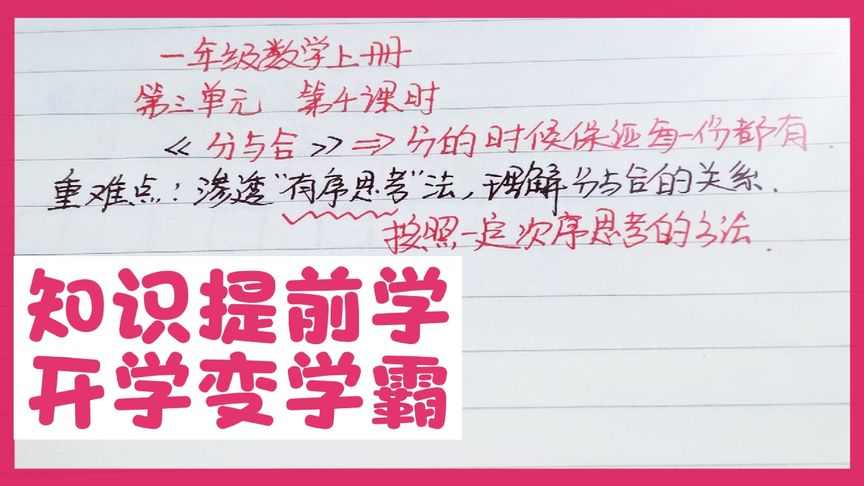 一年级数学上册
第三单元 第4课时
《分与合》⇒分的时候保证每一份都有.
重难点:渗透"有序思考"法,理解分与合的关系.
按照一定次序思考的方法.
知识提前学
开学变学霸